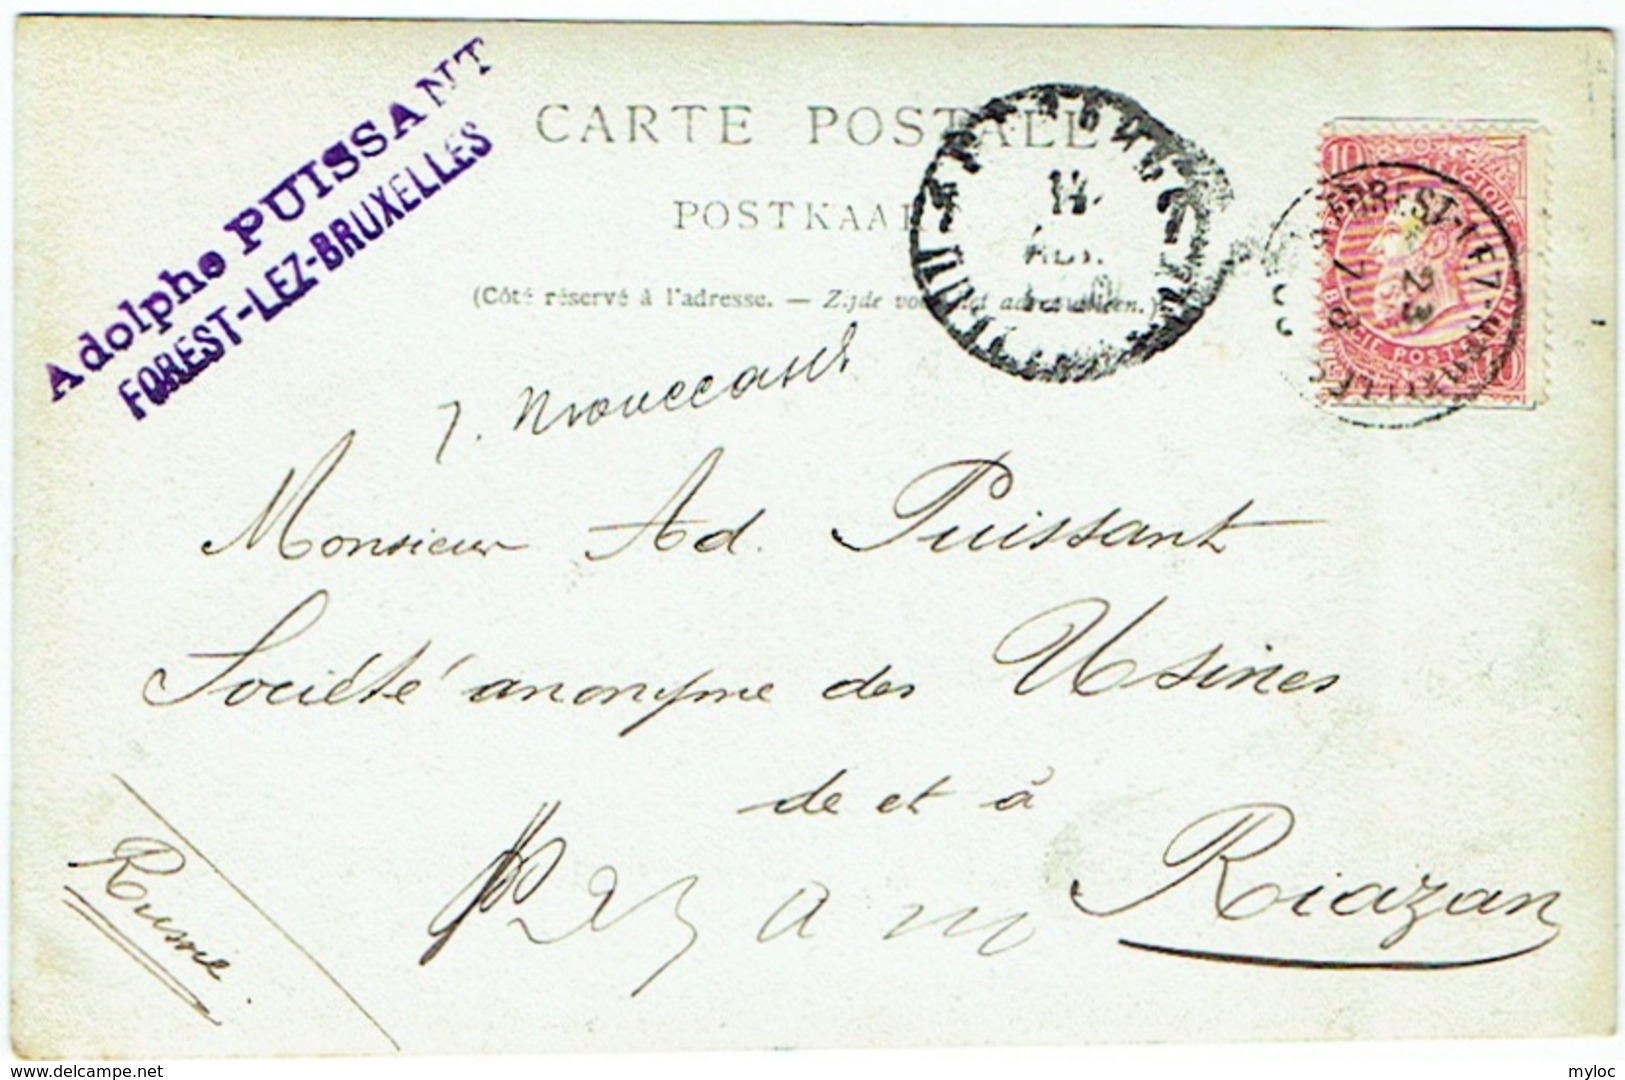 Adolphe PUISSANT
FOREST-LEZ-BRUXELLES
CARTE POSTALE
POSTKAART
(Côté réservé à l'adresse. — Zijde voor het adres alleen.)
10
Monsieur Ad. Puissant
Société anonyme des Usines
de et à
Riazan
Russie.
www.delcampe.net
myloc